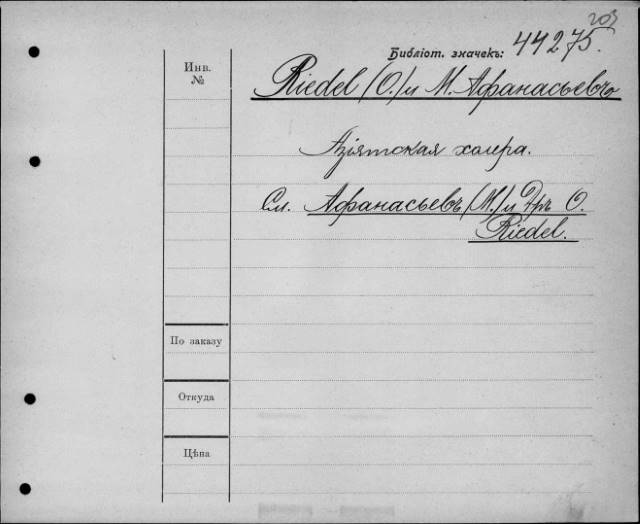 203
Библіот. значекъ: 44275.
Инв.
№
Riedel (O.) и М. Афанасьевъ
Азіятская холера.
См. Афанасьевъ (М.) и Д-ръ О.
Riedel.
По заказу
Откуда
Цѣна